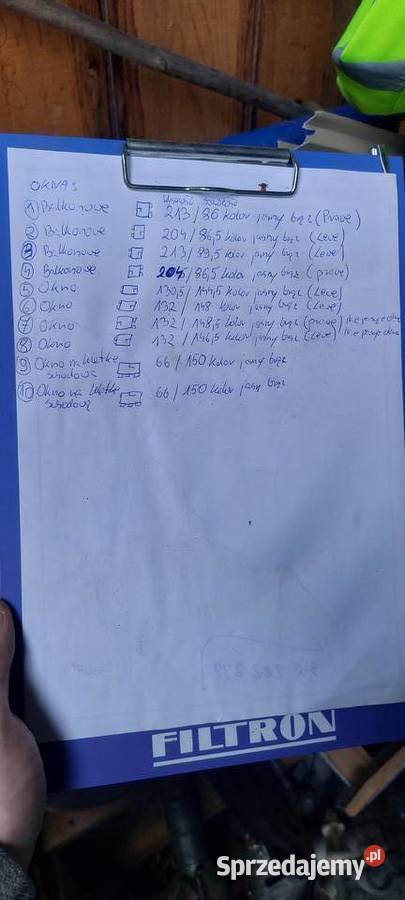 OKNA:
Wysokość szerokość
1 Balkonowe 213/86 kolor jasny brąz (Prawe)
2 Balkonowe 204/86,5 kolor jasny brąz (Lewe)
3 Balkonowe 213/89,5 kolor jasny brąz (Lewe)
4 Balkonowe 204/86,5 kolor jasny brąz (prawe)
5 Okno 130,5/144,5 kolor jasny brąz (Lewe)
6 Okno 132/148 kolor jasny brąz (Lewe)
7 Okno 132/148,5 kolor jasny brąz (prawe)
8 Okno 132/146,5 kolor jasny brąz (Lewe)
9 Okno na klatkę schodową 66/150 kolor jasny brąz
10 Okno na klatkę schodową 66/150 kolor jasny brąz
FILTRON
Sprzedajemy.pl